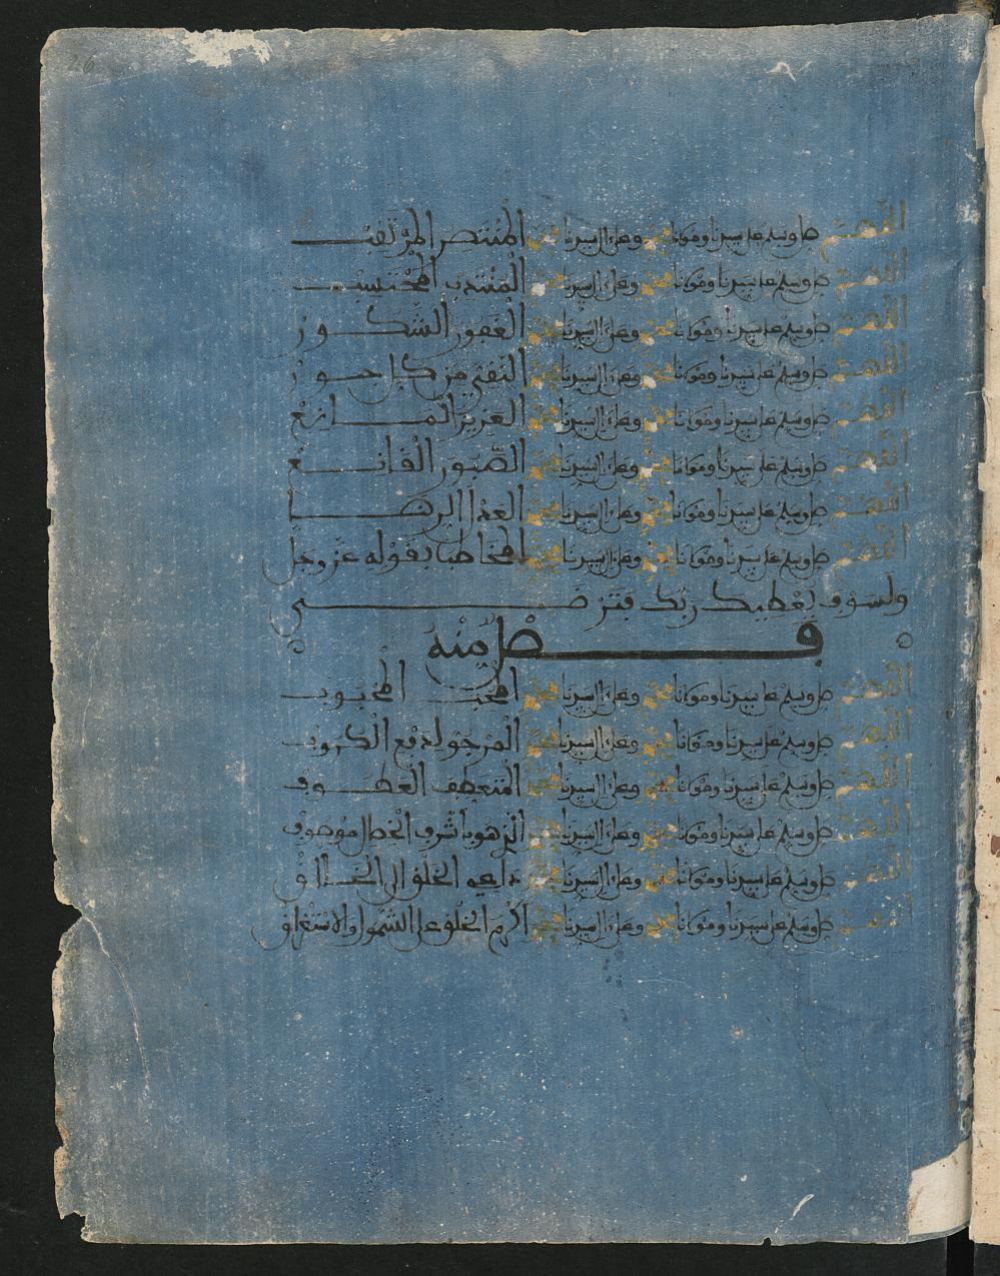 اللهم صل وسلم على سيدنا ومولانا محمد وعلى آل سيدنا محمد المنتصر المرتقب
اللهم صل وسلم على سيدنا ومولانا محمد وعلى آل سيدنا محمد المنتدب المحتسب
اللهم صل وسلم على سيدنا ومولانا محمد وعلى آل سيدنا محمد الغفور الشكور
اللهم صل وسلم على سيدنا ومولانا محمد وعلى آل سيدنا محمد النقي من كل
اللهم صل وسلم على سيدنا ومولانا محمد وعلى آل سيدنا محمد العزيز المانع
اللهم صل وسلم على سيدنا ومولانا محمد وعلى آل سيدنا محمد الصبور القانع
اللهم صل وسلم على سيدنا ومولانا محمد وعلى آل سيدنا محمد العدل الرضا
اللهم صل وسلم على سيدنا ومولانا محمد وعلى آل سيدنا محمد المخاطب بقوله عز وجل
ولسوف يعطيك ربك فترضى
فصل منه
اللهم صل وسلم على سيدنا ومولانا محمد وعلى آل سيدنا محمد المحب المحبوب
اللهم صل وسلم على سيدنا ومولانا محمد وعلى آل سيدنا محمد المرجو لدفع الكروب
اللهم صل وسلم على سيدنا ومولانا محمد وعلى آل سيدنا محمد المتعطف العطوف
اللهم صل وسلم على سيدنا ومولانا محمد وعلى آل سيدنا محمد الذي هو بأشرف الخصال موصوف
اللهم صل وسلم على سيدنا ومولانا محمد وعلى آل سيدنا محمد داعي الخلق إلى الخلاق
اللهم صل وسلم على سيدنا ومولانا محمد وعلى آل سيدنا محمد أكرم الخلق على الشمول والاستغراق